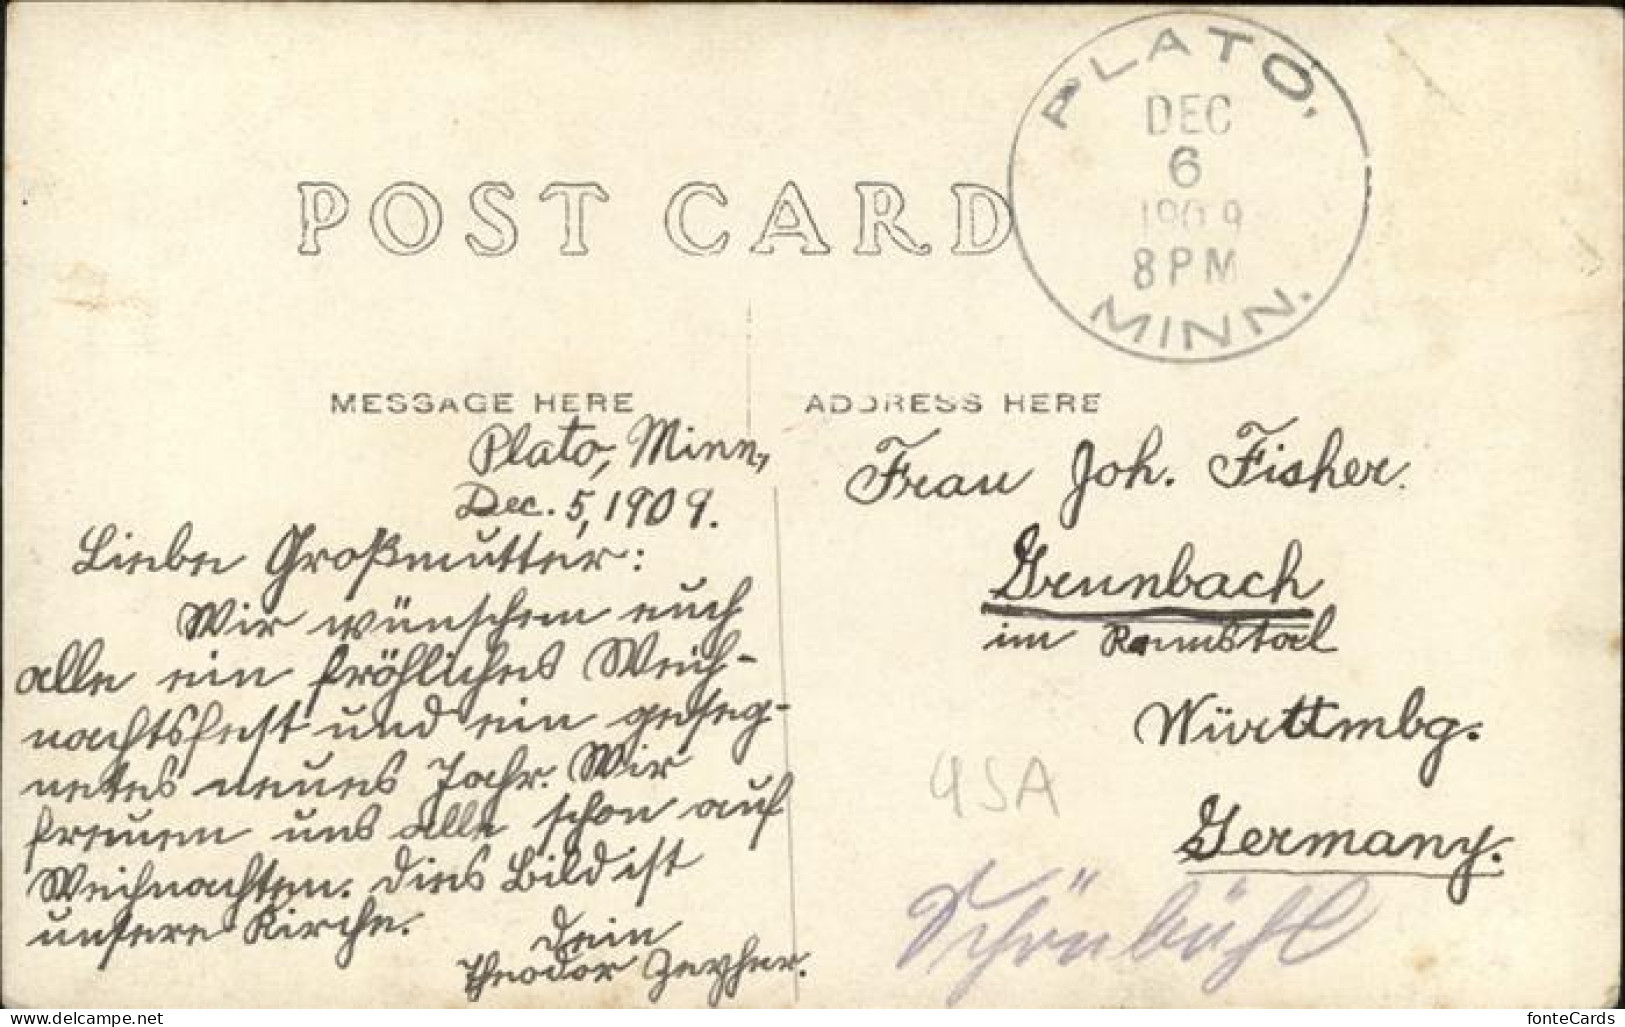 POST CARD
PLATO,
DEC
6
1909
8 PM
MINN.
MESSAGE HERE
Plato, Minn.,
Dec. 5, 1909.
Liebe Großmutter:
Wir wünschen euch
alle ein fröhliches Weih-
nachtsfest und ein geseg-
netes neues Jahr. Wir
freuen uns alle schon auf
Weihnachten. Dies Bild ist
unsere Kirche.
Dein
Theodor Zeyher.
ADDRESS HERE
Frau Joh. Fisher.
Grunbach
im Remstal
Württmbg.
Germany.
USA
Schönbühl
fonteCards
www.delcampe.net